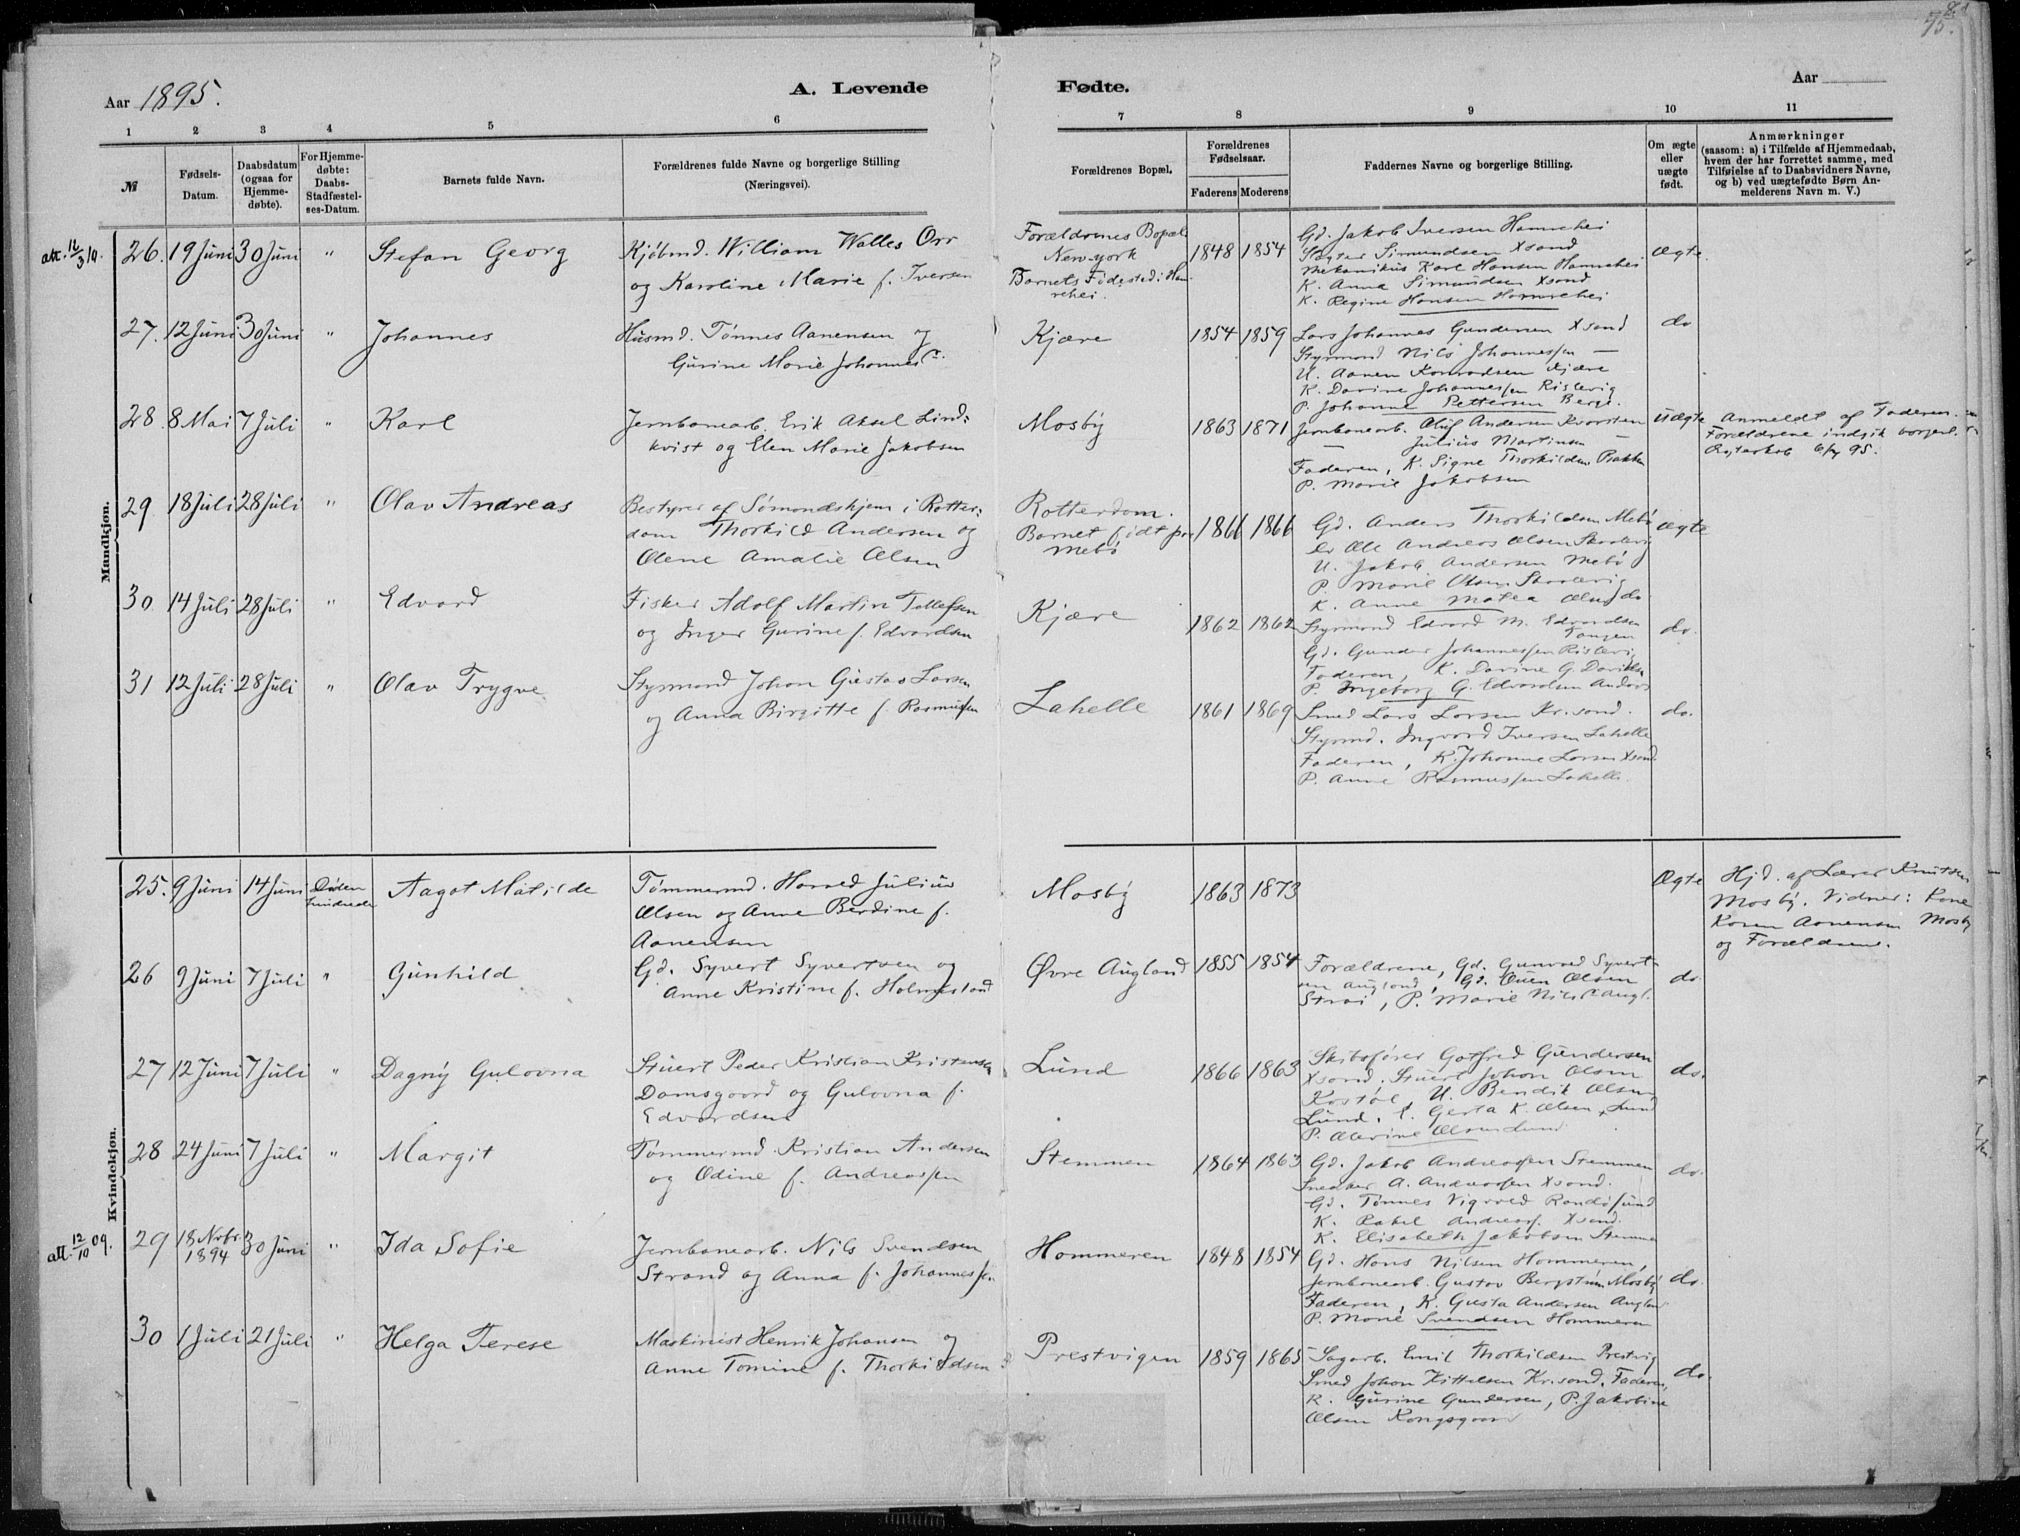 75.
Aar 1895.
A. Levende
Fødte.
Aar
1 2 3 4 5 6 7 8 9 10 11
№
Fødsels-Datum.
Daabsdatum (ogsaa for Hjemme-døbte).
For Hjemme-døbte: Daabs-Stadfæstel-ses-Datum.
Barnets fulde Navn.
Forældrenes fulde Navne og borgerlige Stilling (Næringsvei).
Forældrenes Bopæl.
Forældrenes Fødselsaar.
Faderens Moderens
Faddernes Navne og borgerlige Stilling.
Om ægte eller uægte født.
Anmærkninger
(saasom: a) i Tilfælde af Hjemmedaab,
hvem der har forrettet samme, med
Tilføielse af to Daabsvidners Navne,
og b) ved uægtefødte Børn An-
melderens Navn m. V.)
Mandkjøn.
att. 12/3 19. 26. 19 Juni 30 Juni " Stefan Georg
Kjøbmd. William Walles Orr
og Karoline Marie f. Iversen
Forældrenes Bopæl
Newyork
Barnets Fødested: Ham
rehei.
1848 1854
Gd. Jakob Iversen Hamrehei
Simundsen Xsand
Mekanikus Karl Hansen Hamrehei
K. Anna Simundsen Xsand
K. Regine Hansen Hamrehei
Ægte.
27. 12 Juni 30 Juni " Johannes
Husmd. Tønnes Aanensen og
Gurine Marie Johannes
Kjære
1854 1859
Lars Johannes Gundersen Xsand
Styrmand Nils Johannessen —
U. Aanen Konradsen Kjære
K. Davine Johannessen Rislevig
P. Johanne Pettersen Berge.
do
28. 8 Mai 7 Juli " Karl
Jernbanearb. Erik Aksel Lind-
kvist og Elen Marie Jakobsen
Mosby
1863 1871
Jernbanearb. Oluf Andersen
— Julius Martinsen —
Faderen, K. Signe Thorkildsen
P. Marie Jakobsen
Uægte
Anmeldt af Faderen.
Forældrene indgik borgerl.
Ægteskab 6/7 95.
29. 18 Juli 28 Juli " Olav Andreas
Bestyrer af Sømandshjem i Rotter-
dam Thorkild Andersen og
Olene Amalie Olsen
Rotterdam.
Barnet født paa
Mebø
1866 1866
Gd. Anders Thorkildsen Mebø
Ole Andreas Olsen
U. Jakob Andersen Mebø
P. Marie Olsen
K. Anne Matea Olsen do
Ægte
30. 14 Juli 28 Juli " Edvard
Fisker Adolf Martin Tollefsen
og Inger Gurine f. Edvardsen
Kjære
1862 1862
Styrmand Edvard M. Edvardsen
Tangen
Gd. Gunder Johannessen Rislevig
Faderen, K. Davine G. Davidsen
P. Ingeborg G. Edvardsen
do.
31 12 Juli 28 Juli " Olav Trygve
Styrmand Johan Gustav Larsen
og Anna Birgitte f. Rasmussen
Lahelle
1861 1869
Smed Lars Larsen Kr.sand.
Styrmd. Ingvard Iversen Lahelle
Faderen, K. Johanne Larsen Xsand
P. Anne Rasmussen Lahelle.
do.
Kvindekjøn.
25. 9 Juni 14 Juni Døden hindrede Aagot Matilde
Tømmermd. Harald Julius
Olsen og Anne Berdine f.
Aanensen
Mosby
1863 1873
Ægte
Hjd. af Lærer Knutsen
Mosby. Vidner: Kone
Karen Aanensen Mosby
og Forældrene.
26 9 Juni 7 Juli " Gunhild
Gd. Syvert Syvertsen og
Anne Kristine f. Holmesland
Øvre Augland
1855 1854
Forældrene, Gd. Gunvald Syvert-
sen Augland, Gd. Ouen Olsen
Strai, P. Marie Nils Augl.
do.
27 12 Juni 7 Juli " Dagny Gulovna
Stuert Peder Kristian Kristensen
Damsgaard og Gulovna f.
Edvardsen
Lund
1866 1863
Skibsfører Gotfred Gundersen
Xsand. Stuert Johan Olsen
Kostøl, U. Bendik Olsen
Lund. Gerta K. Olsen, Lund
P. Olsen Lund
do.
28 24 Juni 7 Juli " Margit
Tømmermd. Kristian Andersen
og Odine f. Andreassen
Stemmen
1864 1863
Gd. Jakob Andreassen Stemmen
Snedker A. Andreassen Xsand.
Gd. Tønnes Vigvold Randøsund
K. Rakel Andreass. Xsand.
K. Elisabeth Jakobsen Stemmen
do.
att. 12/10 09. 29 18 Novbr. 1894 30 Juni " Ida Sofie
Jernbanearb. Nils Svendsen
Strand og Anna f. Johannessen
Hommeren
1848 1854
Gd. Hans Nilsen Hommeren,
Jernbanearb. Gustav Bergstrøm Mosby
Faderen, K. Gusta Andersen Augland
P. Marie Svendsen Hommeren
do.
30 1 Juli 21 Juli " Helga Terese
Maskinist Henrik Johansen og
Anne Tomine f. Thorkildsen
Prestvigen
1859 1865
Sagarb. Emil Thorkildsen Prestvig
Smed Johan Kittelsen Kr.sand. Faderen,
K. Gurine Gundersen, P. Jakobine
Olsen Kongsgaard
do.